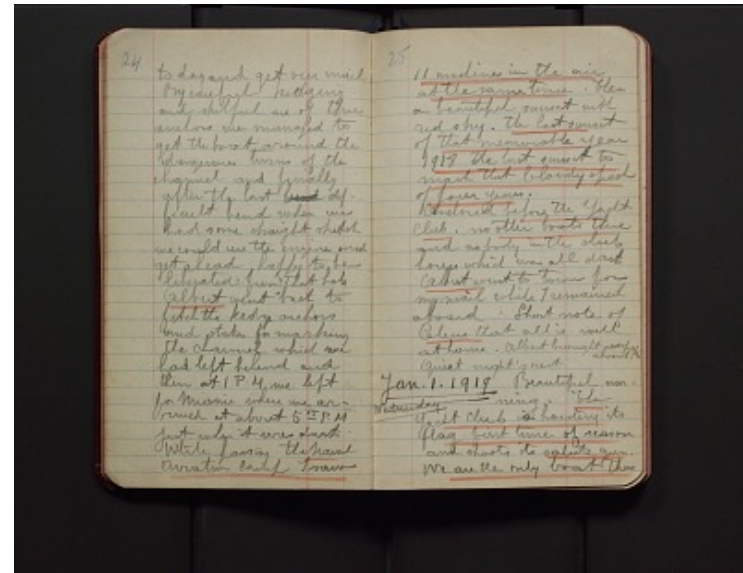 24
to day and get our mail
By careful kedging
and skilful use of the
anchors we managed to
get the boat around the
dangerous turns of the
channel and finally
after the last bend dif-
ficult bend when we
had some straight stretch
we could use the engine and
get ahead happy to be
liberated from that hole
Albert went back to
fetch the kedge anchors
and stakes for marking
the channel which we
had left behind and
then at 1 P.M. we left
for Miami where we ar-
rived at about 5 P.M
just when it was dark.
While passing the Naval
Aviation Camp I saw
25
11 machines in the air
at the same time. Then
a beautiful sunset with
red sky. The last sunset
of that memorable year
1918 the last sunset to
mark that bloody epoch
of four years.
Anchored before the Yacht
Club. no other boats there
and nobody in the club
house which was all dark
Albert went to town for
my mail while I remained
aboard. Short note of
Celine that all is well
at home. Albert brought
Quiet night's rest
Jan. 1. 1919 Beautiful mor-
Wednesday ning. The
Yacht Club is hoisting its
flag first time of season
and shoots its salute gun.
We are the only boat there